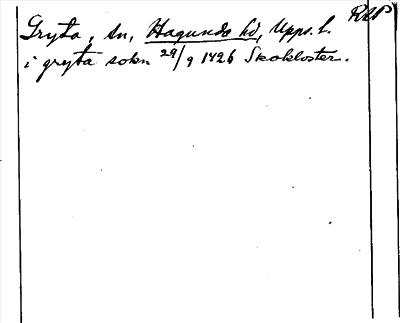 Gryta, sn, Hagunda hd, Upps. l. RAP
i gryta sokn 29/9 1426 Skokloster.